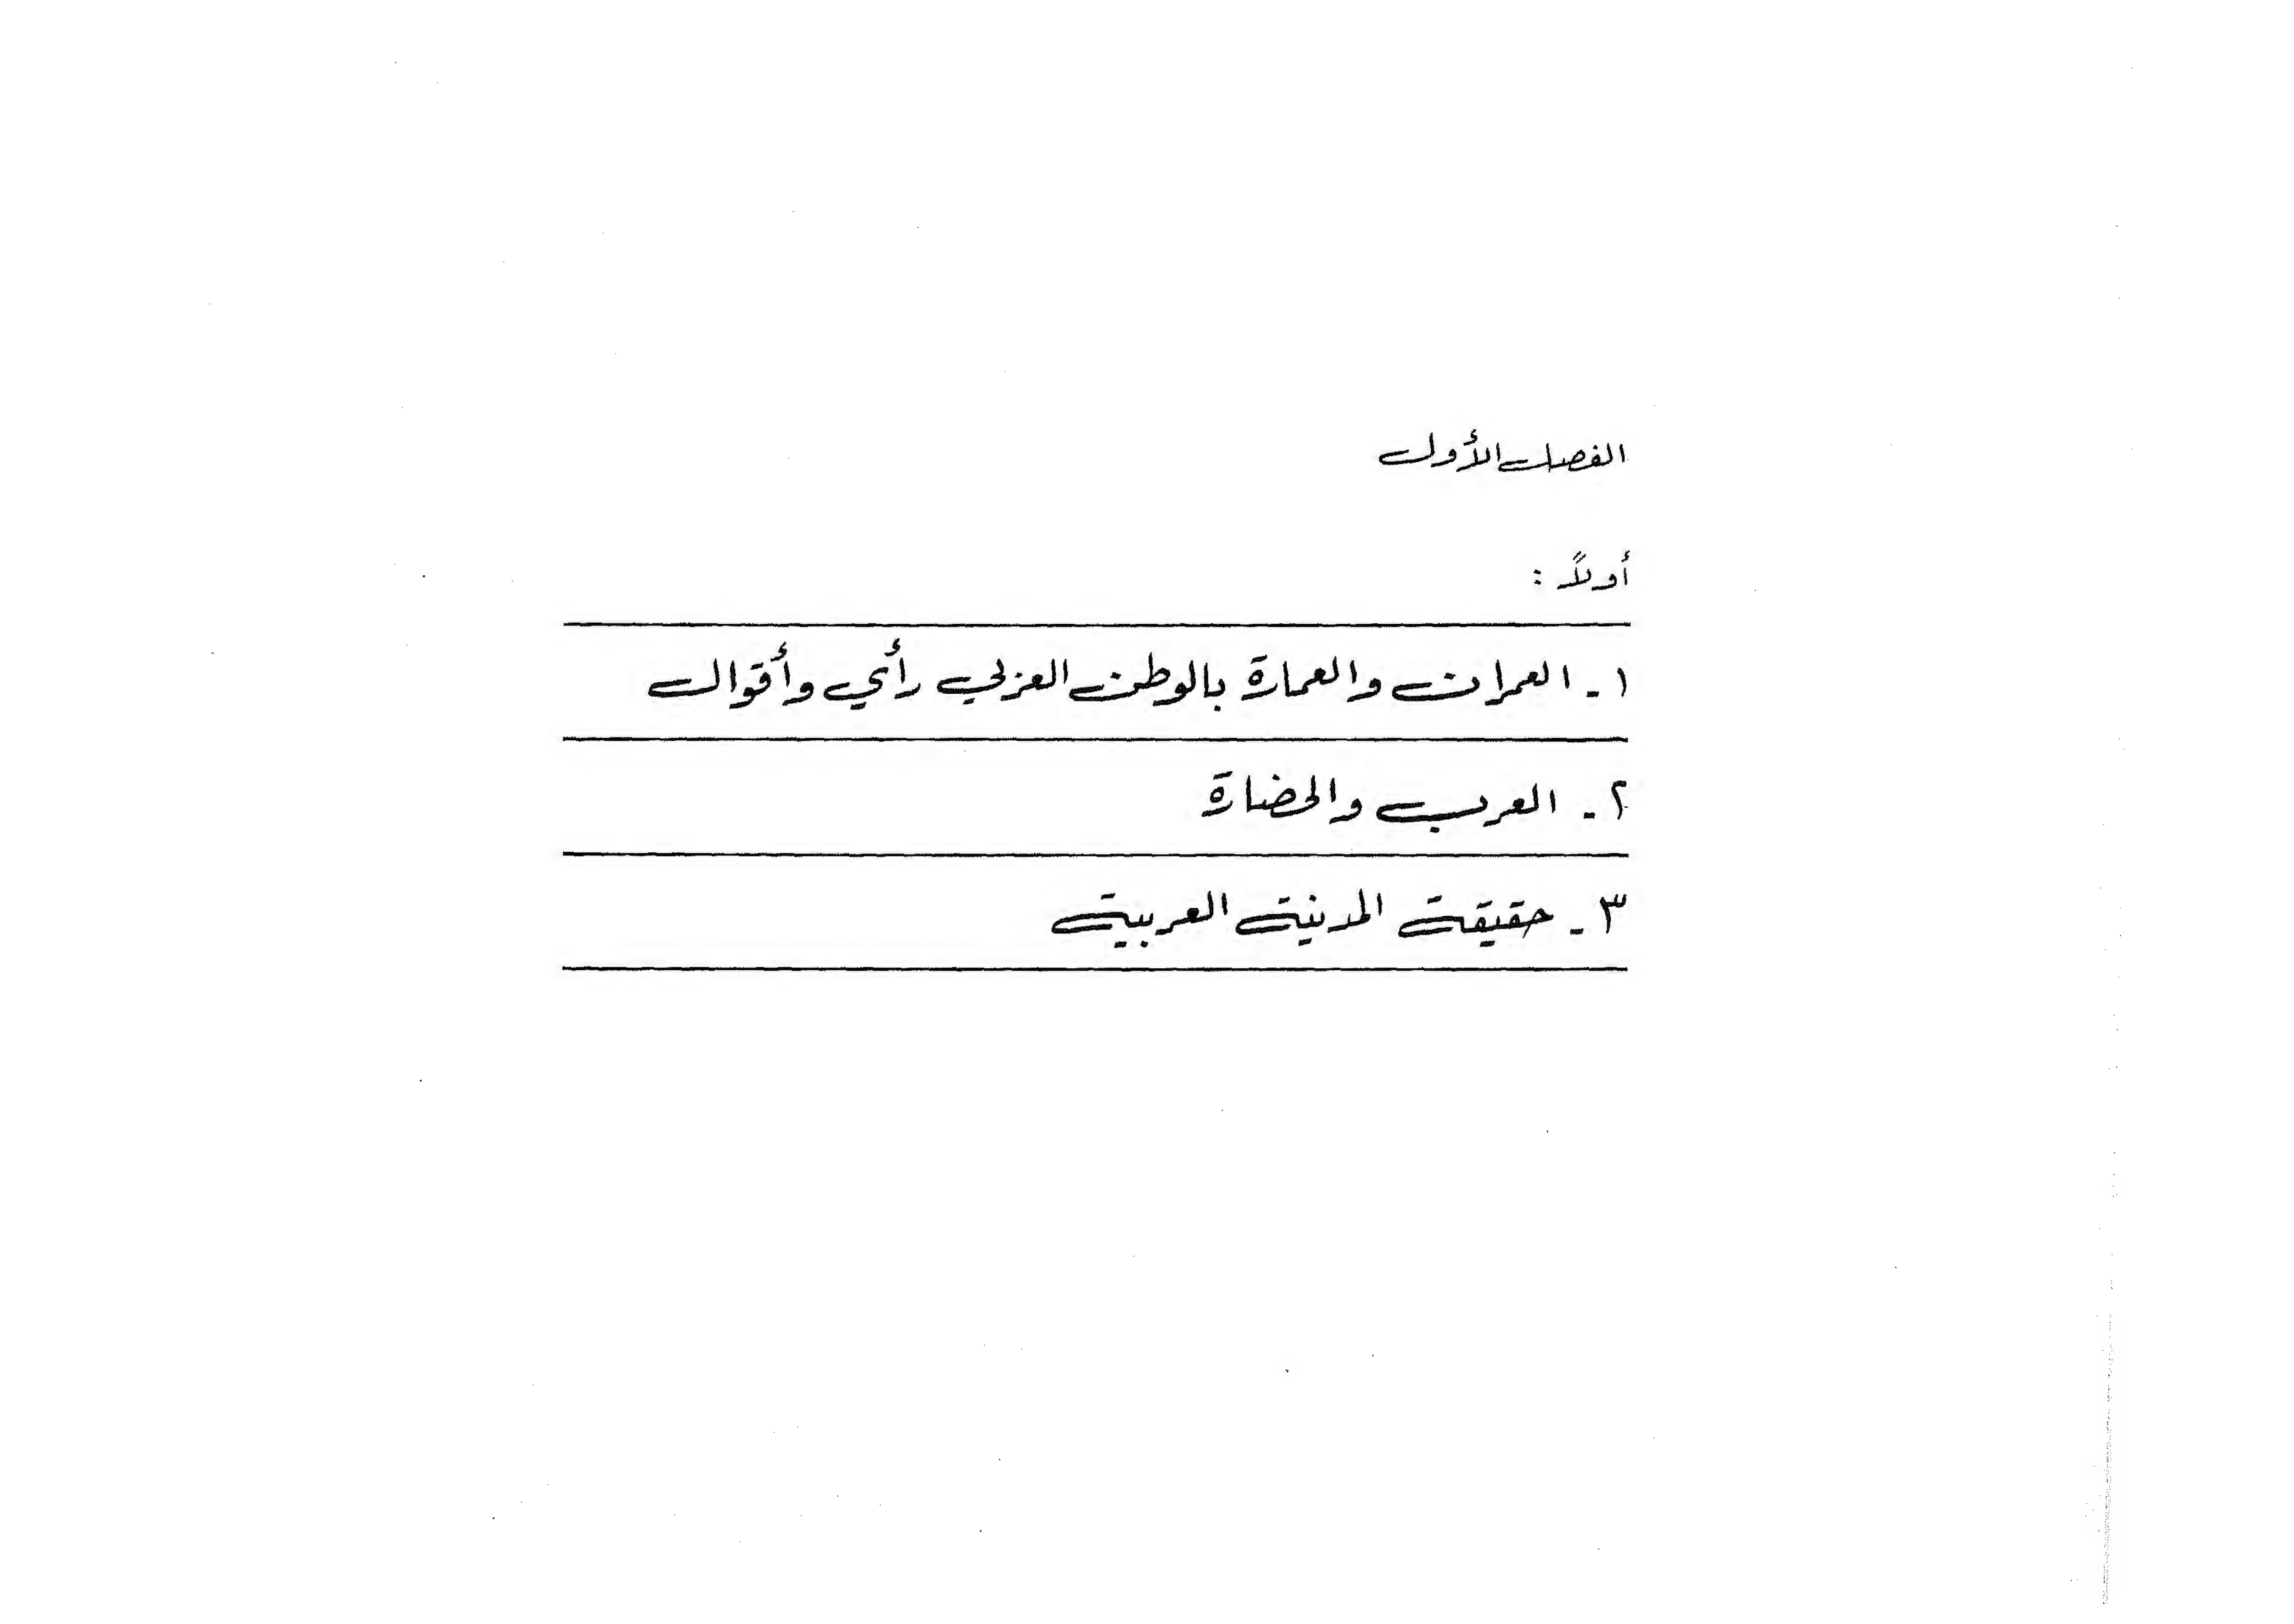 الفصل الأول
أولاً :
١ - العمران والعمارة بالوطن العربي رأي وأقوال
٢ - العرب والحضارة
٣ - حقيقة المدينة العربية